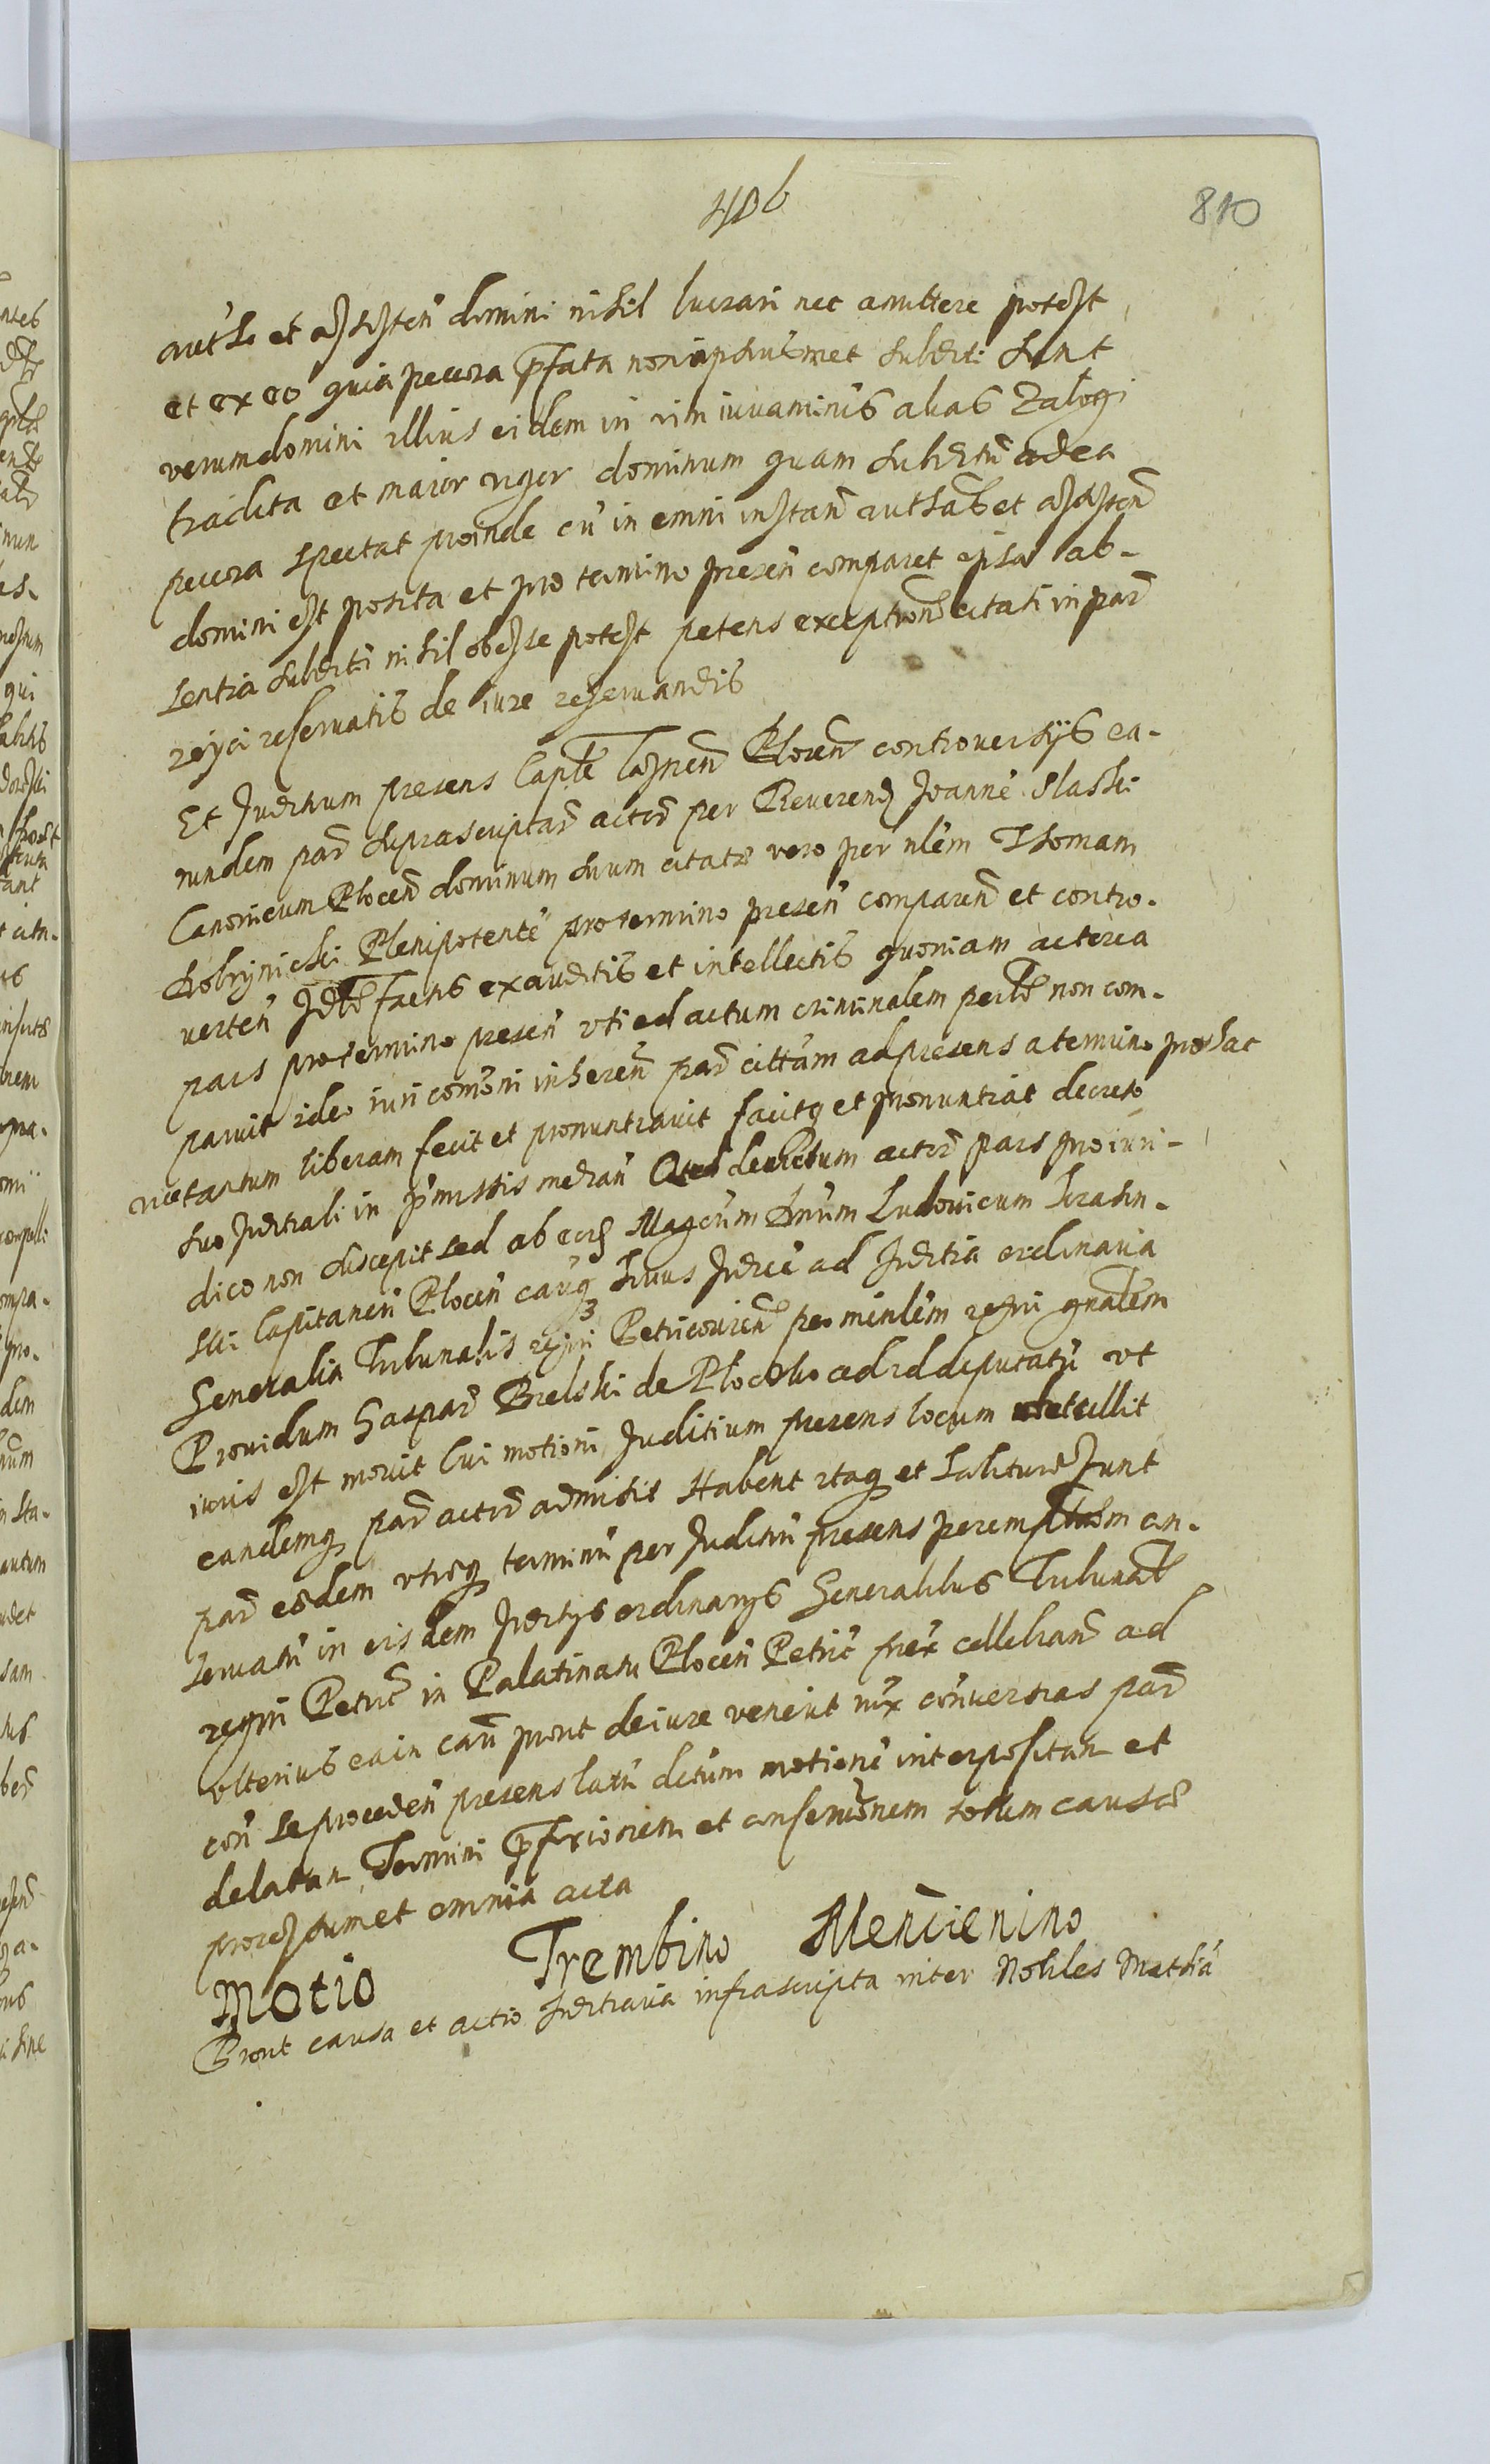 406
810
et assisten domini nihil lucrari nec amittere potest
et ex eo quia pecora pfata non ipsiusmet subditi sunt
verum domini illius eidem in vim iuvaminis alias Załogi
tradita et maior rigor dominum quam subditu ad ea
pecora spectat proinde cu in omni instan et assisten
domini est posita et pro termino presen comparet ipsa ab-
sentia subditi nihil obesse potest petens exception citati in par
reijci reservatis de iure reservandis
Et Juditium presens Capte Plocen controversijs ea-
rundem par suprascriptar actor per Reverend Joanne Slaski
Canonicum Plocen dominum suum citate vero per nlem Thomam
Plenipotente pro termino presen comparen et contro-
verten factis exauditis et intellectis quoniam actorea
pars pro termino presen uti ad actum criminalem non com-
paruit ideo iuri comoni inheren par cittam ad presens a termino pro hac
vice tantum liberam fecit et pronuntiavit facitq et pronuntiat decreto
suo Juditiali in pmissis median decretum actor pars pro iuri-
dico non suscepit sed ab eoq Magcum Dnum Ludovicum Krasin-
ski Capitaneu Plocen causq huius Judice ad Juditia ordinaria
Generalia Tribunalis regni Petricovien per minlem regni gnalem
Providum Gaspar Bielski de Plocko ad id deputatu ut
iuris est movit Cui motioni Juditium presens locum detullit
eandemq par actor admisit Habent itaq et habiture sunt
par eedem utreq terminu per Juditiu presens peremptum con-
servatu in eisdem Juditijs ordinarijs Generalibus Tribunal
regni Petric in Palatinatu Plocen Petric prox cellebran ad
ulterius ea in cau prout de iure venerit iux conversias par
con se proceden presens latu ditum motione interpositam et
delatam Termini pfixionem et conservonem totum causae
processum et omnia acta
Motio Trembino Mencienino
Prout causa et actio Juditiaria infrascripta inter Nobiles Mathia